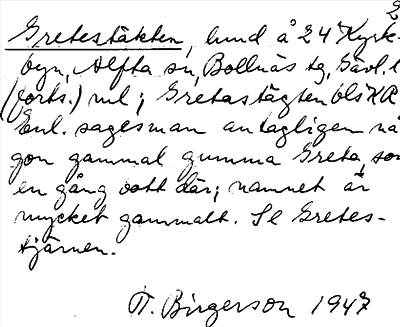 2
Gretestäkten, lund å 24 Kyrk-
byn, Alfta sn, Bollnäs tg, Gävl. l
(forts.) ml; Gretastägten blskR
Enl. sagesman antagligen nå
gon gammal gumma Greta, som
en gång bott där; namnet är
mycket gammalt. Se Gretes-
tjärnen.
T. Birgerson 1947